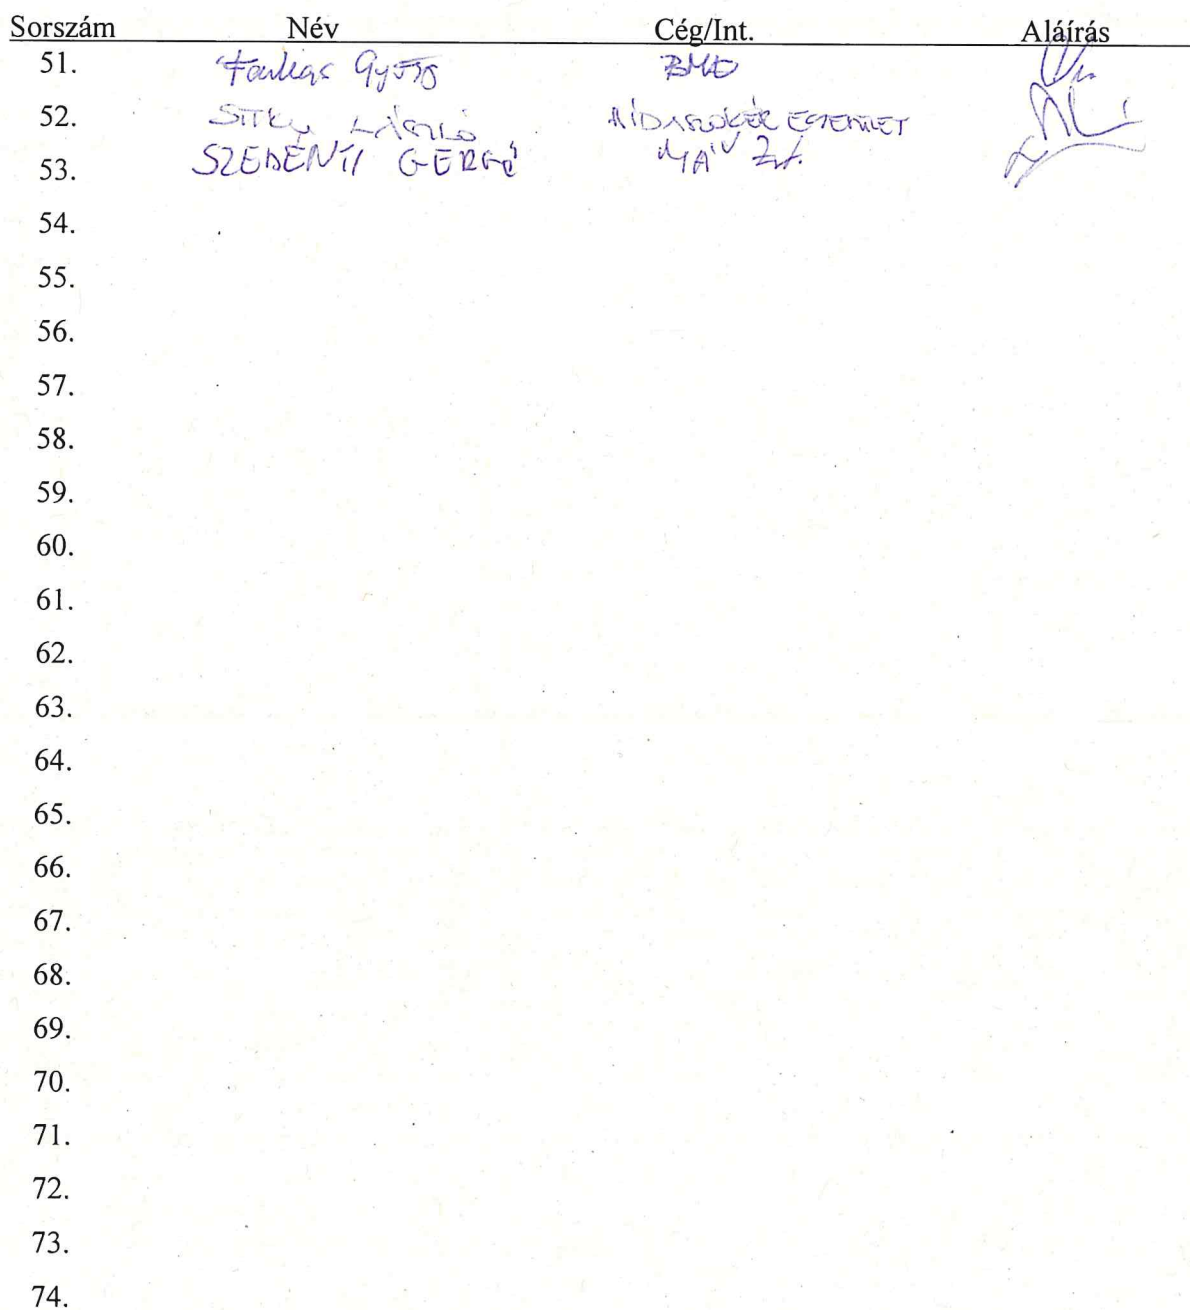 Sorszám Név Cég/Int. Aláírás
51. Farkas György BME
52. Sitku László
53. SZEDENYI GERGŐ MÁV Zrt.
54.
55.
56.
57.
58.
59.
60.
61.
62.
63.
64.
65.
66.
67.
68.
69.
70.
71.
72.
73.
74.